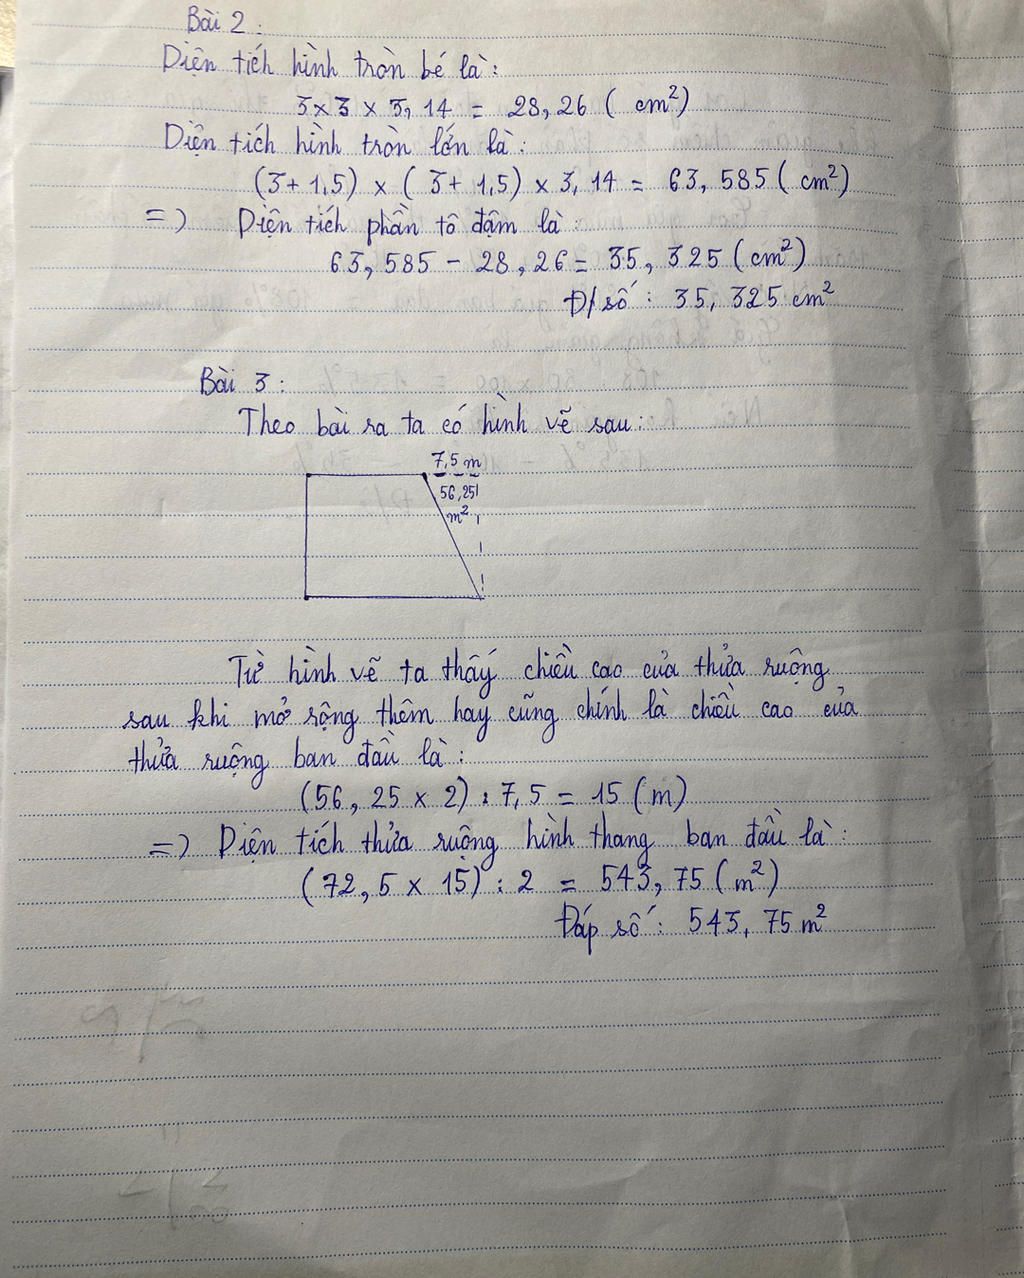 Bài 2 :
Diện tích hình tròn bé là :
3 x 3 x 3,14 = 28,26 ( cm²)
Diện tích hình tròn lớn là :
(3+1,5) x ( 3+1,5) x 3,14 = 63,585 ( cm²)
=> Diện tích phần tô đậm là
63,585 - 28,26 = 35,325 (cm²)
Đ/số : 35,325 cm²
Bài 3 :
Theo bài ra ta có hình vẽ sau :
7,5 m
56,25
m²
Từ hình vẽ ta thấy chiều cao của thửa ruộng
sau khi mở rộng thêm hay cũng chính là chiều cao của
thửa ruộng ban đầu là :
(56,25 x 2) : 7,5 = 15 (m)
=> Diện tích thửa ruộng hình thang ban đầu là :
(72,5 x 15) : 2 = 543,75 (m²)
Đáp số : 543,75 m²